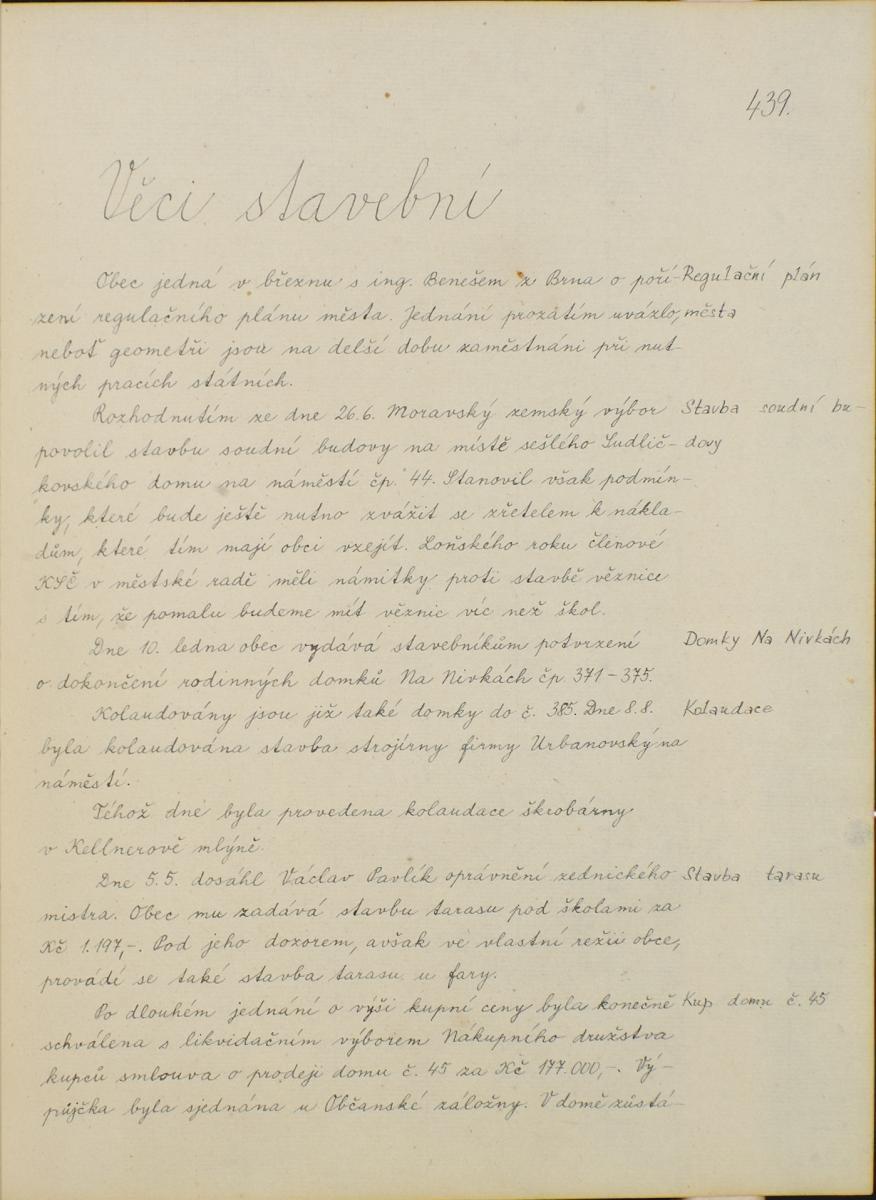 439.
Věci stavební
Obec jedná v březnu s ing. Benešem z Brna o poří-
Regulační plán
zení regulačního plánu města. Jednání prozatím uvázlo,
města
neboť geometři jsou na delší dobu zaměstnáni při nut-
ných pracích státních.
Rozhodnutím ze dne 26.6. Moravský zemský výbor
Stavba soudní bu-
povolil stavbu soudní budovy na místě sešlého Sudlič-
dovy
kovského domu na náměstí čp. 44. Stanovil však podmín-
ky, které bude ještě nutno zvážit se zřetelem k nákla-
dům, které tím mají obci vzejít. Loňského roku členové
KSČ v městské radě měli námitky proti stavbě věznice
s tím, že pomalu budeme mít věznic víc než škol.
Dne 10. ledna obec vydává stavebníkům potvrzení
Domky Na Nivkách
o dokončení rodinných domků Na Nivkách čp. 371-375.
Kolaudovány jsou již také domky do č. 385. Dne 8.8.
Kolaudace
byla kolaudována stavba strojírny firmy Urbanovský na
náměstí.
Téhož dne byla provedena kolaudace škrobárny
v Kellnerově mlýně.
Dne 5.5. dosáhl Václav Pavlík oprávnění zednického
Stavba tarasu
mistra. Obec mu zadává stavbu tarasu pod školami za
Kč 1.197,-. Pod jeho dozorem, avšak ve vlastní režii obce,
provádí se také stavba tarasu u fary.
Po dlouhém jednání o výši kupní ceny byla konečně
Kup domu č. 45
schválena s likvidačním výborem Nákupního družstva
kupců smlouva o prodeji domu č. 45 za Kč 177.000,-. Vý-
půjčka byla sjednána u Občanské záložny. V domě zůstá-